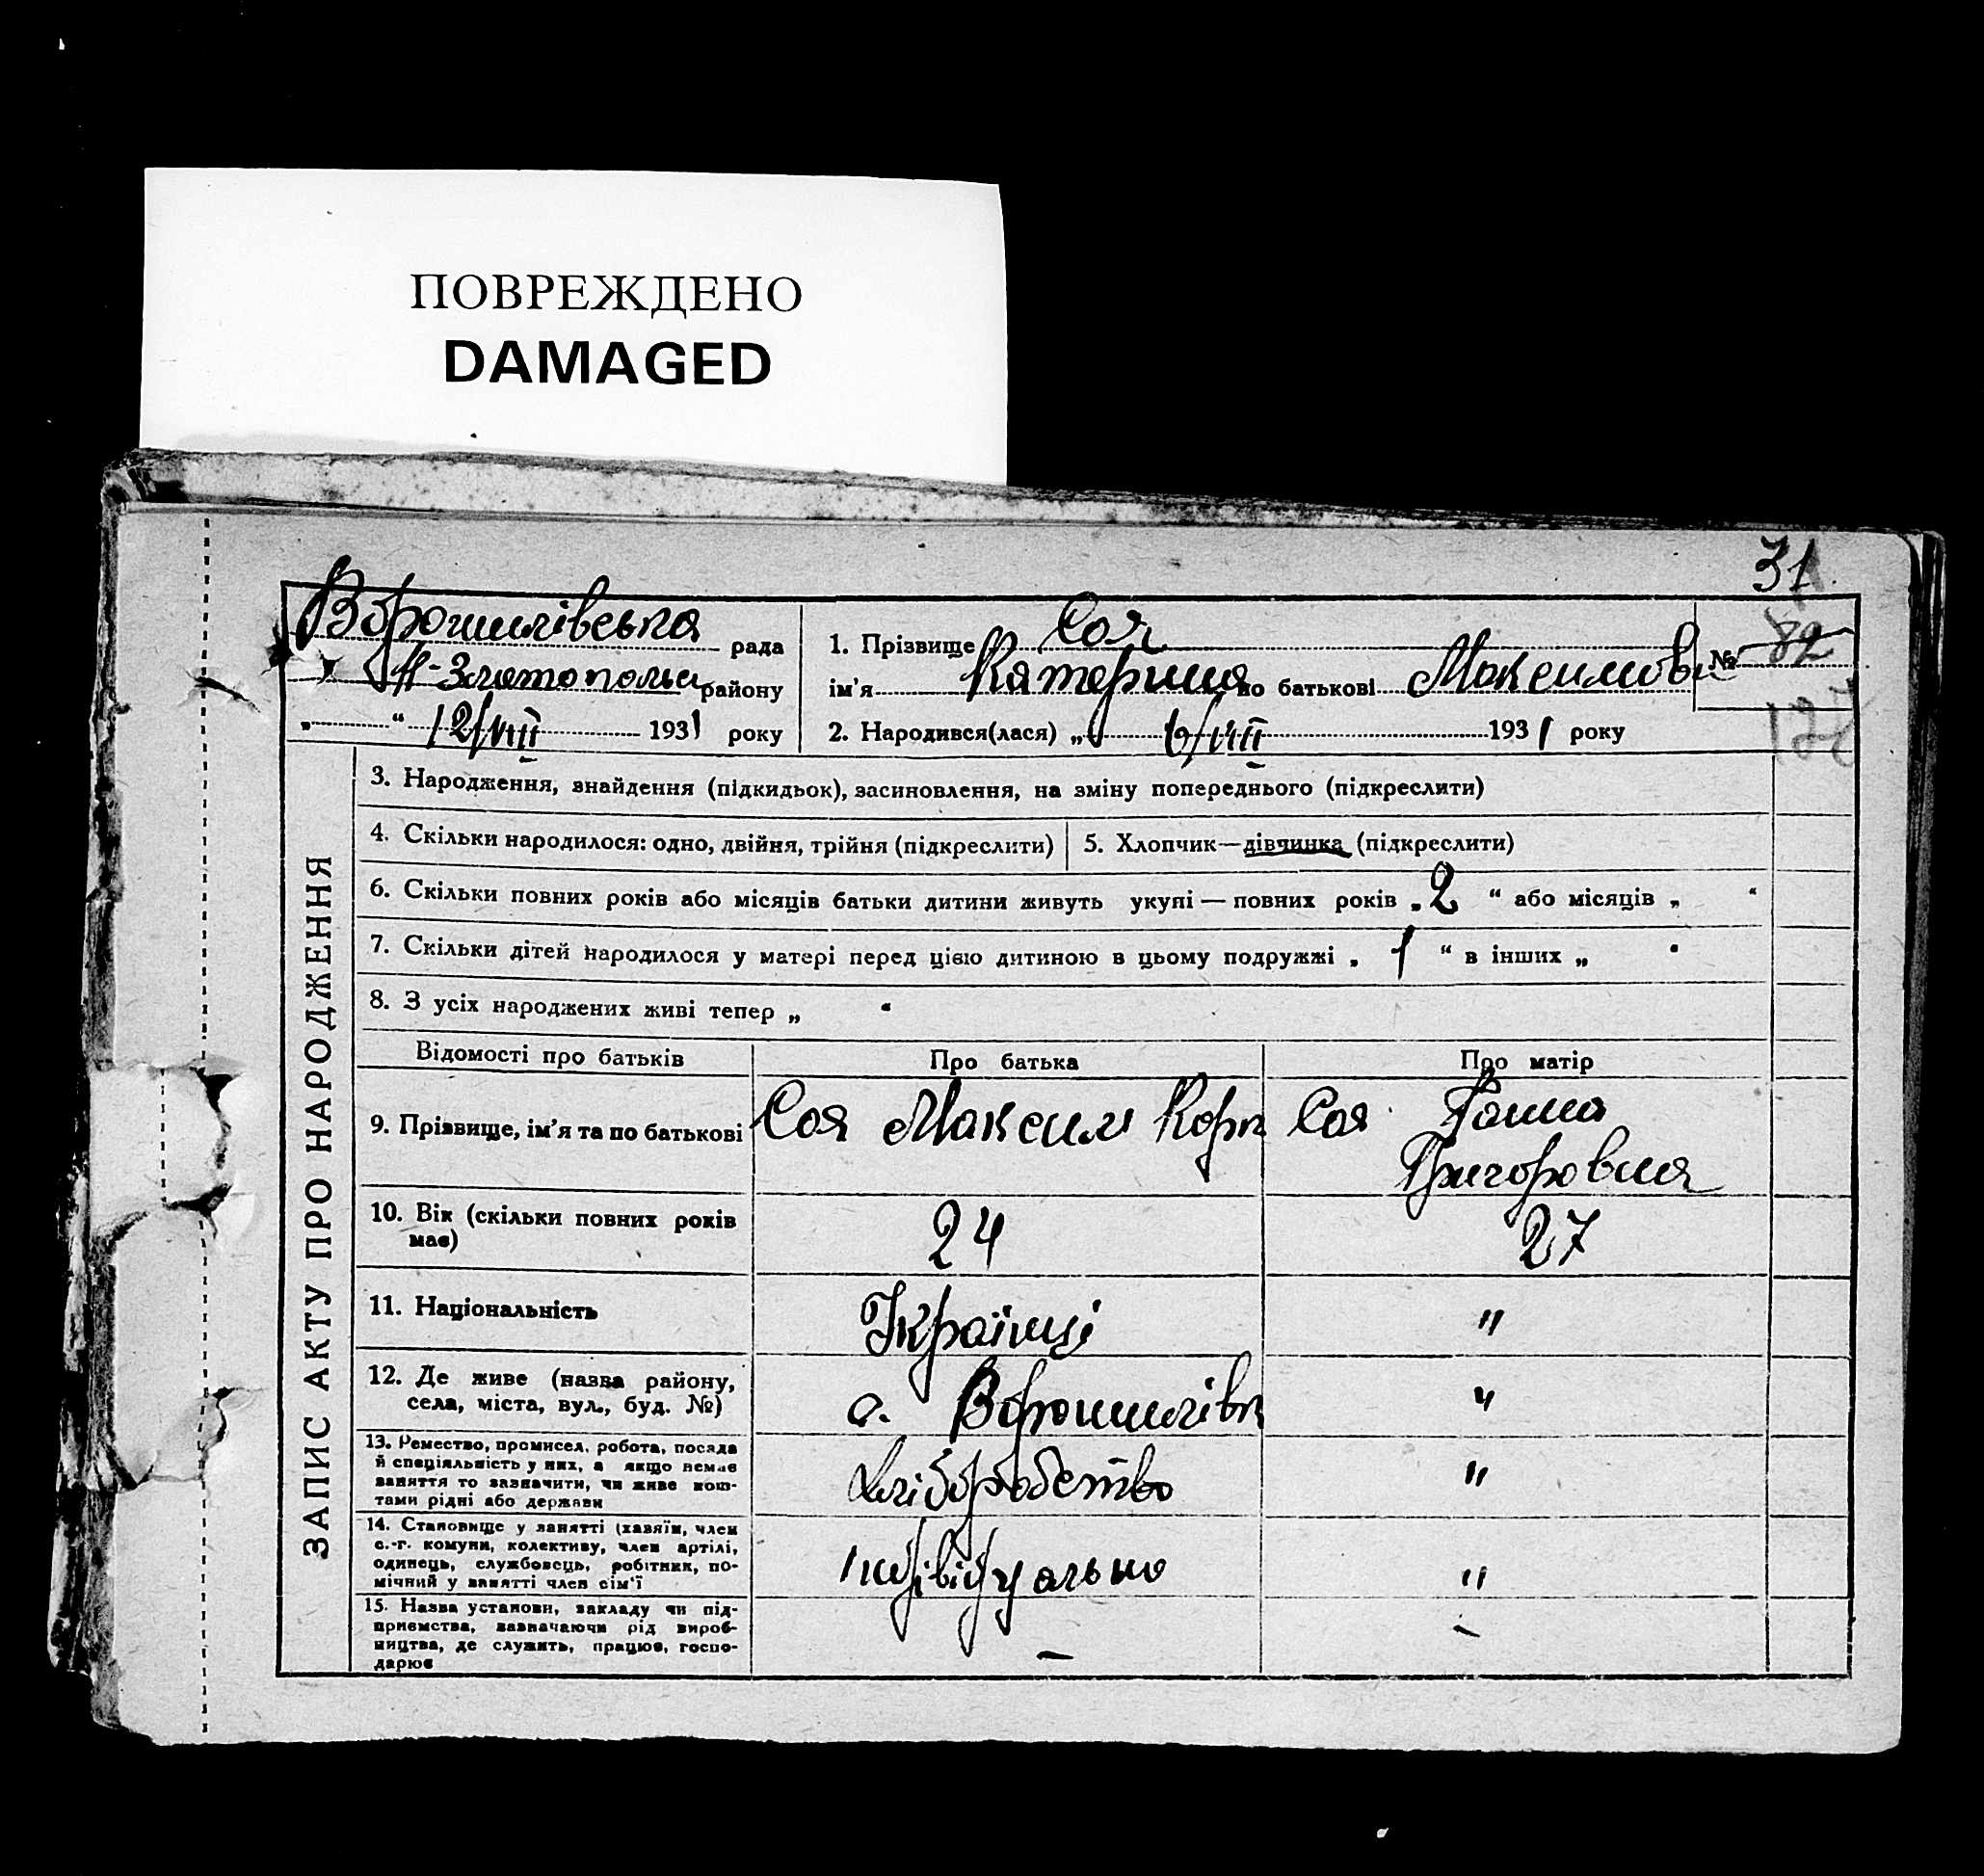 ПОВРЕЖДЕНО
DAMAGED
31
Ворошилівська рада
Н-Златопольск району
„ “ 12/VIII 1931 року
1. Прізвище Соя
ім’я Катерина по батькові Максимовн
№ 82
2. Народився(лася) „ 6/VIII 1931 року
ЗАПИС АКТУ ПРО НАРОДЖЕННЯ
3. Народження, знайдення (підкидьок), засиновлення, на зміну попереднього (підкреслити)
4. Скільки народилося: одно, двійня, трійня (підкреслити)
5. Хлопчик—дівчинка (підкреслити)
6. Скільки повних років або місяців батьки дитини живуть укупі — повних років „ 2 “ або місяців „ “
7. Скільки дітей народилося у матері перед цією дитиною в цьому подружжі „ 1 “ в інших „ “
8. З усіх народжених живі тепер „ “
Відомості про батьків Про батька Про матір
9. Прізвище, ім’я та по батькові Соя Максим Корн Соя Ганна
Григоровна
10. Вік (скільки повних років має) 24 27
11. Національність Українці "
12. Де живе (назва району,
села, міста, вул., буд. №) с. Ворошилівк "
13. Ремество, промисел, робота, посада
й спеціяльність у них, а якщо немає
заняття то зазначити, чи живе кош-
тами рідні або держави
Хліборобство "
14. Становище у занятті (хазяїн, член
с.-г. комуни, колективу, член артілі,
одинець, службовець, робітник, по-
мічний у занятті член сім’ї
Індівідуально "
15. Назва установи, закладу чи під-
приємства, зазначаючи рід вироб-
ництва, де служить, працює, госпо-
дарює
– –